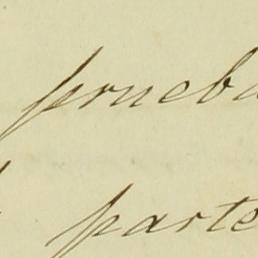 prueba
parte